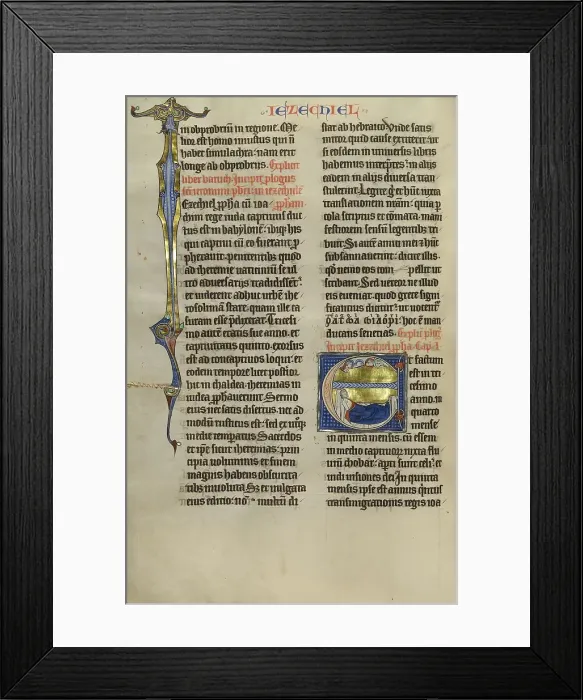 IEZECHIEL
in obprobriū in regione. Me
lior est homo iustus qui n̄
habet simulachra: nam erit
longe ab obprobriis. Explicit
liber baruch. Incipit plogus
sci ieronimi pbri in iezechielē
Iezechiel ppha cū ioa pphetam.
chim rege iuda captiuus duc
tus est in babylonē: ibiq; his
qui captiui cū eo fuerant p
phetauit: penitentibus quod
ad iheremie uaticiniū se ul
tro aduersariis tradidissēt:
et uiderent adhuc urbē ihe
rosolimā stare: quam ille ca
suram esse pdixerat. Tricesi
mo autē etatis sue anno: et
captiuitatis quinto: exorsus
est ad concaptiuos loqui: et
eodem tempore licet posterior
hic in chaldea: iheremias in
iudea pphauerunt. Sermo
eius nec satis disertus: nec ad
modū rusticus est: sed ex utroq;
medie temperatus. Sacerdos
et ipse sicut iheremias: prin
cipia uoluminis et finem
magnis habens obscurita
tibȝ inuoluta. Sȝ et uulgata
eius editio: nō multū di
stat ab hebraico. Unde satis
miror quid cause extiterit: ut
si eosdem in uniuersis libris
habemus interp̄tes: in aliis
eadem in aliis diuersa tran
stulerint. Legite g̊ et hūc iuxta
translationem nr̄am: quia p
cola scriptus et cōmata: mani
festiorem sensū legentibȝ tri
buit. Si autē amici mei et hūc
subsannauerint: dicite illis:
qd̓ nemo eos com pellit ut
scribant. Sed uereor ne illud
eis eueniat: quod grece signi
ficantius dicitur: ut uocent̄
hoc ē man
ducans senecias. Explic̄ plog̊
Incipit Iezechiel ppha. Cap. I
Et factum
est in tri
cesimo
anno: in
quarto
mense
in quinta mensis: cū essem
in medio captiuorum iuxta flu
uiū chobar: apti sunt celi: et
uidi uisiones dei. In quinta
mensis ipse est annus quintus
transmigrationis regis ioa